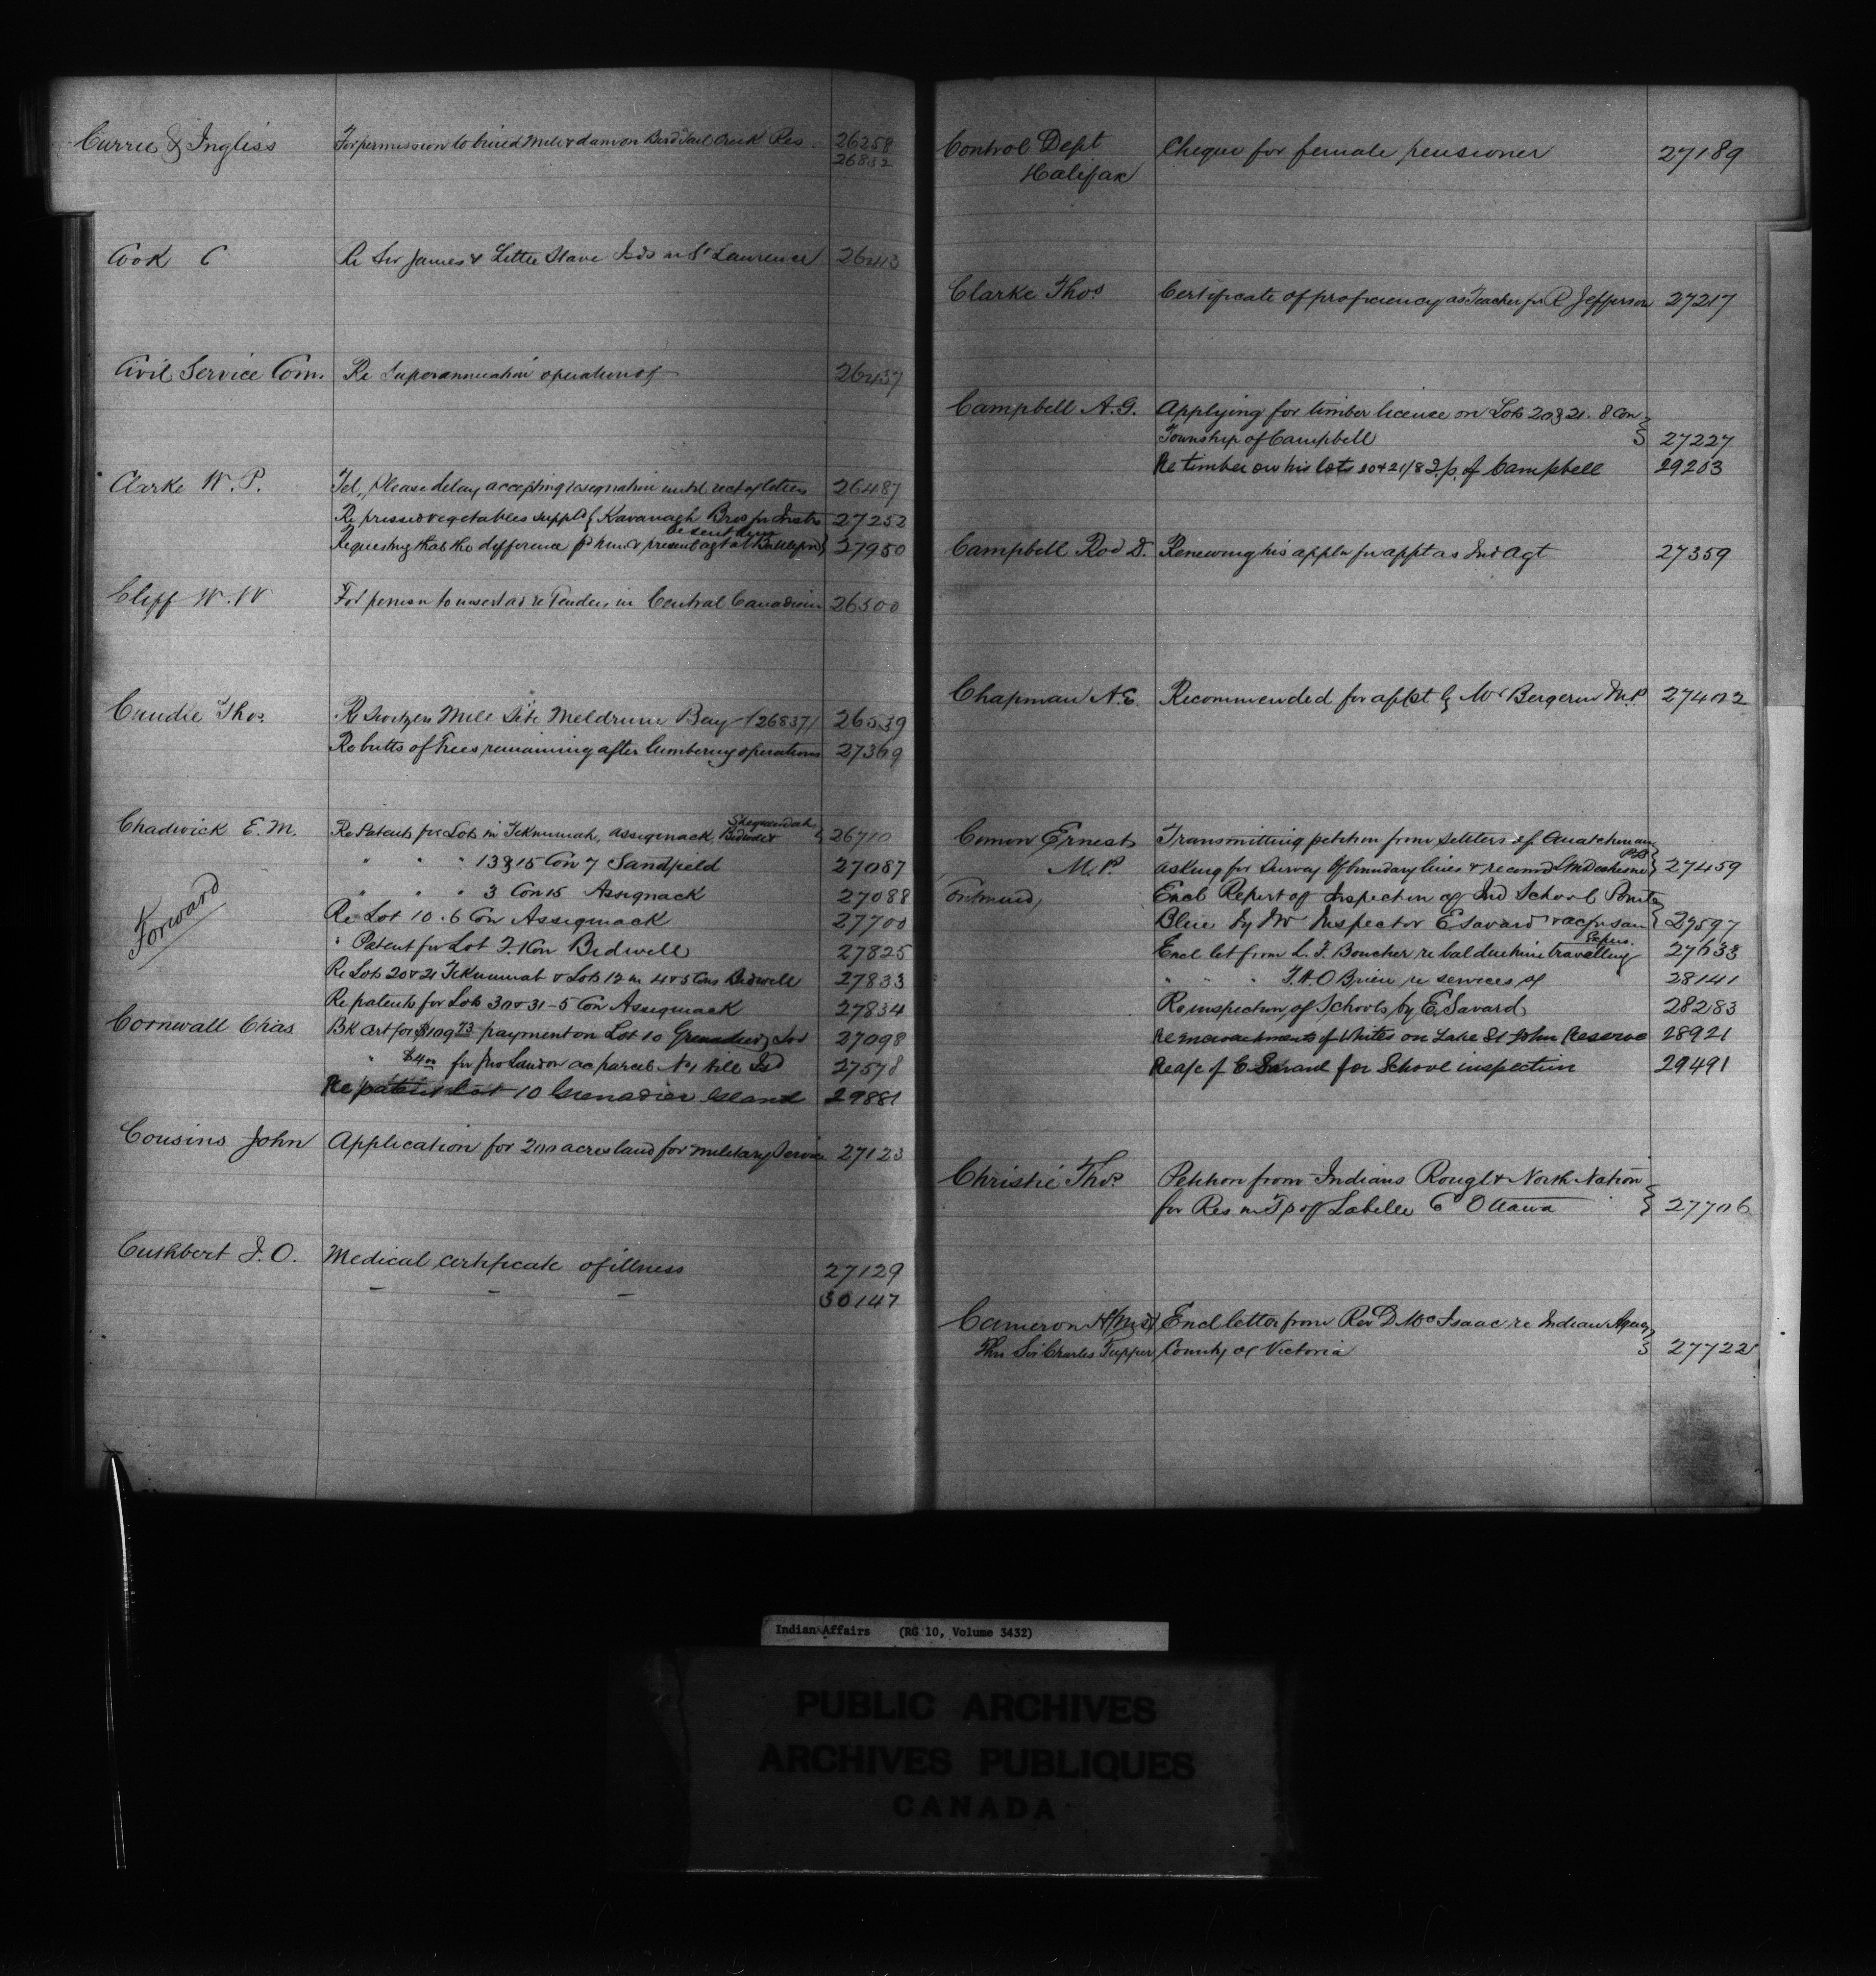 Currie & Ingliss For permission to build Mill & dam on Bird Tail Creek Res 26258
26832
Cook C Re Sir James & Little Slave Isds in St Lawrence 26413
Civil Service Com. Re Superannuation operation of 26437
Clarke W. P. Tel, Please delay accepting resignation until rect of letters 26487
Re pressed vegetables suppld by Kavanagh Bros for Insts 27252
Requesting that the difference pd him & present agt at Battleford be sent him 27950
Cliff W. W For permn to insert ad re Tenders in Central Canadian 26500
Cundie Thos. Re Mill Site Meldrum Bay (26837) 26539
Re butts of Trees remaining after lumbering operations 27369
Chadwick E. M. Re Patents for Lots in Tekummah, Assiginack, Bidwell & Sheguiandah 26710
" " " 13 & 15 Con 7 Sandfield 27087
" " " 3 Con 15 Assignack 27088
Forward
Re Lot 10. 6 Con Assiginack 27700
" Patent for Lot 7. 1 Con Bidwell 27825
Re Lots 20 & 21 Tekummah & Lots 12 in 4 & 5 Cons Bidwell 27833
Re patents for Lots 30 & 31 - 5 Con Assiginack 27834
Cornwall Chas BK Cert for $109.73 payment on Lot 10 Grenadier Isd 27098
" $4.00 for Jno Landon ac parcel No 1 Hill Isd 27578
Re patent Lot 10 Grenadier Island 29881
Cousins John Application for 200 acres land for Military Service 27123
Cuthbert J. O. Medical certificate of illness 27129
- - - 30147
Control Dept Cheque for female pensioner 27189
Halifax
Clarke Thos. Certificate of proficiency as Teacher for R Jefferson 27217
Campbell A. G. Applying for timber licence on Lots 20 & 21. 8 Con
Township of Campbell 27227
Re timber on his lots 20 & 21/8 T/p. of Campbell 29203
Campbell Rod D. Renewing his appln for appt as Ind Agt 27359
Chapman A. E. Recommended for appt by Mr Bergeron M.P. 27402
Cimon Ernest Transmitting petition from settlers of Ouatchouan
M. P. asking for Survey of boundary lines & recomd L M Deschesne P.L.S 27459
Continued, Encl Report of Inspection of Ind School Pointe
Bleue by Mr Inspector E Savard & ac for sam 27597
Encl let from L. T. Boucher re bal due him travelling Expns. 27633
" " " T. A. O Brien re services of 28141
Re inspection of Schools by E. Savard 28283
Re encroachments of Whites on Lake St John Reserve 28921
Re a/c of E Savard for School inspection 29491
Christie Thos. Petition from Indians Rouge & North Nation
for Res in Tp of Labelle Co Ottawa 27706
Cameron H (M.D) Encl letter from Rev D. McIsaac re Indian Agency
Thro Sir Charles Tupper County of Victoria 27722
Indian Affairs (RG 10, Volume 3432)
PUBLIC ARCHIVES
ARCHIVES PUBLIQUES
CANADA